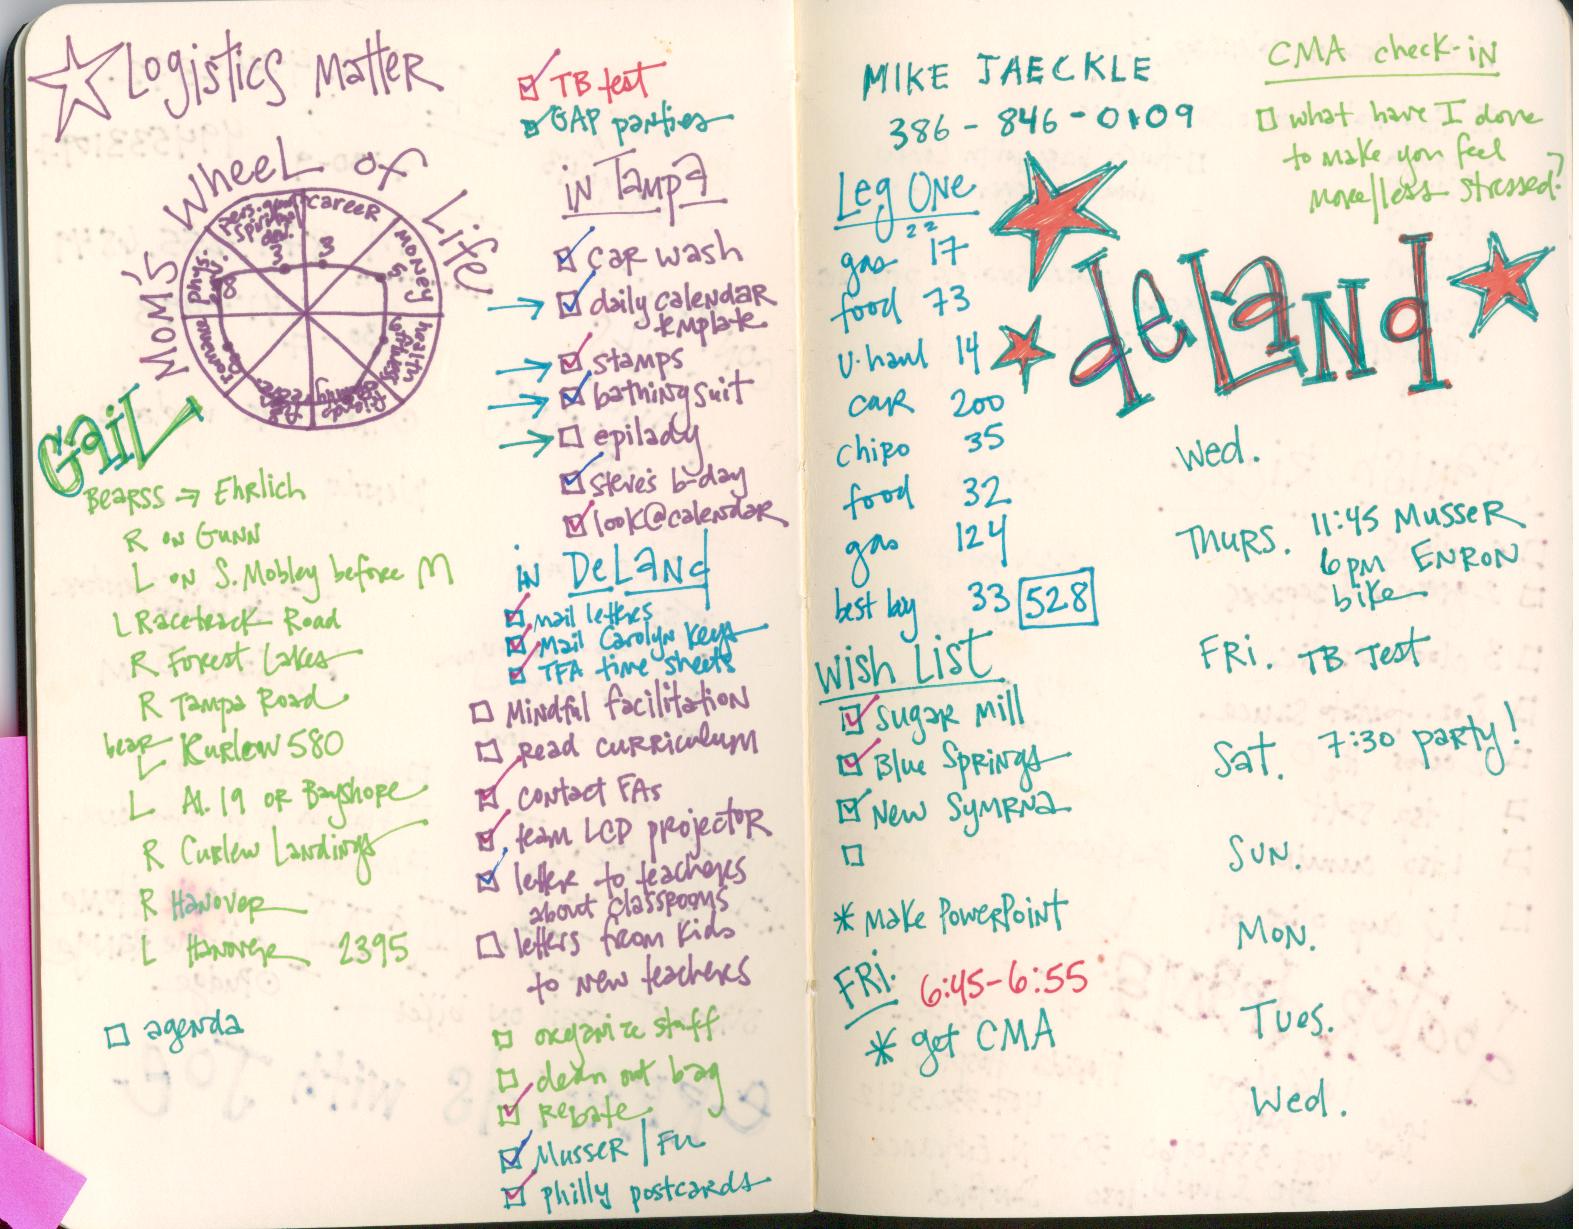 Logistics Matter
Mom's Wheel of Life
career
money
5
3
3
8
Gail
Bearss → Ehrlich
R on Gunn
L on S. Mobley before M
L Racetrack Road
R Forest Lakes
R Tampa Road
bear L Kurlew 580
L Al. 19 or Bayshore
R Curlew Landings
R Hanover
L Hanover 2395
agenda
TB test
GAP parties
in Tampa
car wash
daily calendar
template
stamps
bathing suit
epilady
steve's b-day
look@calendar
in DeLand
mail letters
Mail Carolyn Keys
TFA time sheets
Mindful facilitation
Read curriculum
contact FAs
team LCD projector
letter to teachers
about classrooms
letters from kids
to new teachers
organize stuff
clean out bag
Rebate
Musser/Fu
philly postcards
MIKE JAECKLE
386-846-0109
Leg One
22
gas 17
food 73
U-haul 14
car 200
chiro 35
food 32
gas 124
best buy 33 528
Wish List
Sugar Mill
Blue Springs
New Symrna
* Make PowerPoint
FRi. 6:45-6:55
* get CMA
CMA check-in
what have I done
to make you feel
more/less stressed?
deLand
Wed.
Thurs. 11:45 Musser
6pm ENRON
bike
FRi. TB Test
Sat. 7:30 party!
Sun.
Mon.
Tues.
Wed.